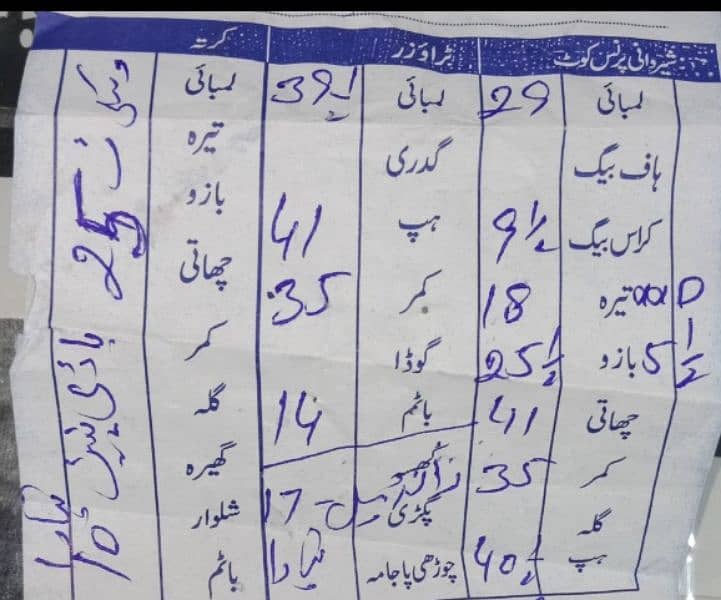 شیروانی پرنس کوٹ ٹراؤزر کرتہ
لمبائی 29 لمبائی 39 1/2 لمبائی
ہاف بیگ گدری تیرہ
کراس بیگ 9 1/2 ہپ 41 بازو
تیرہ 18 کمر 35 چھاتی
5 1/2 بازو 25 1/2 گوڈا کمر
چھاتی 41 باٹم 14 گلہ
کمر 35 گھیرہ
گلہ پگڑی 17 شلوار
ہپ 40 1/2 چوڑھی پاجامہ باٹم
25